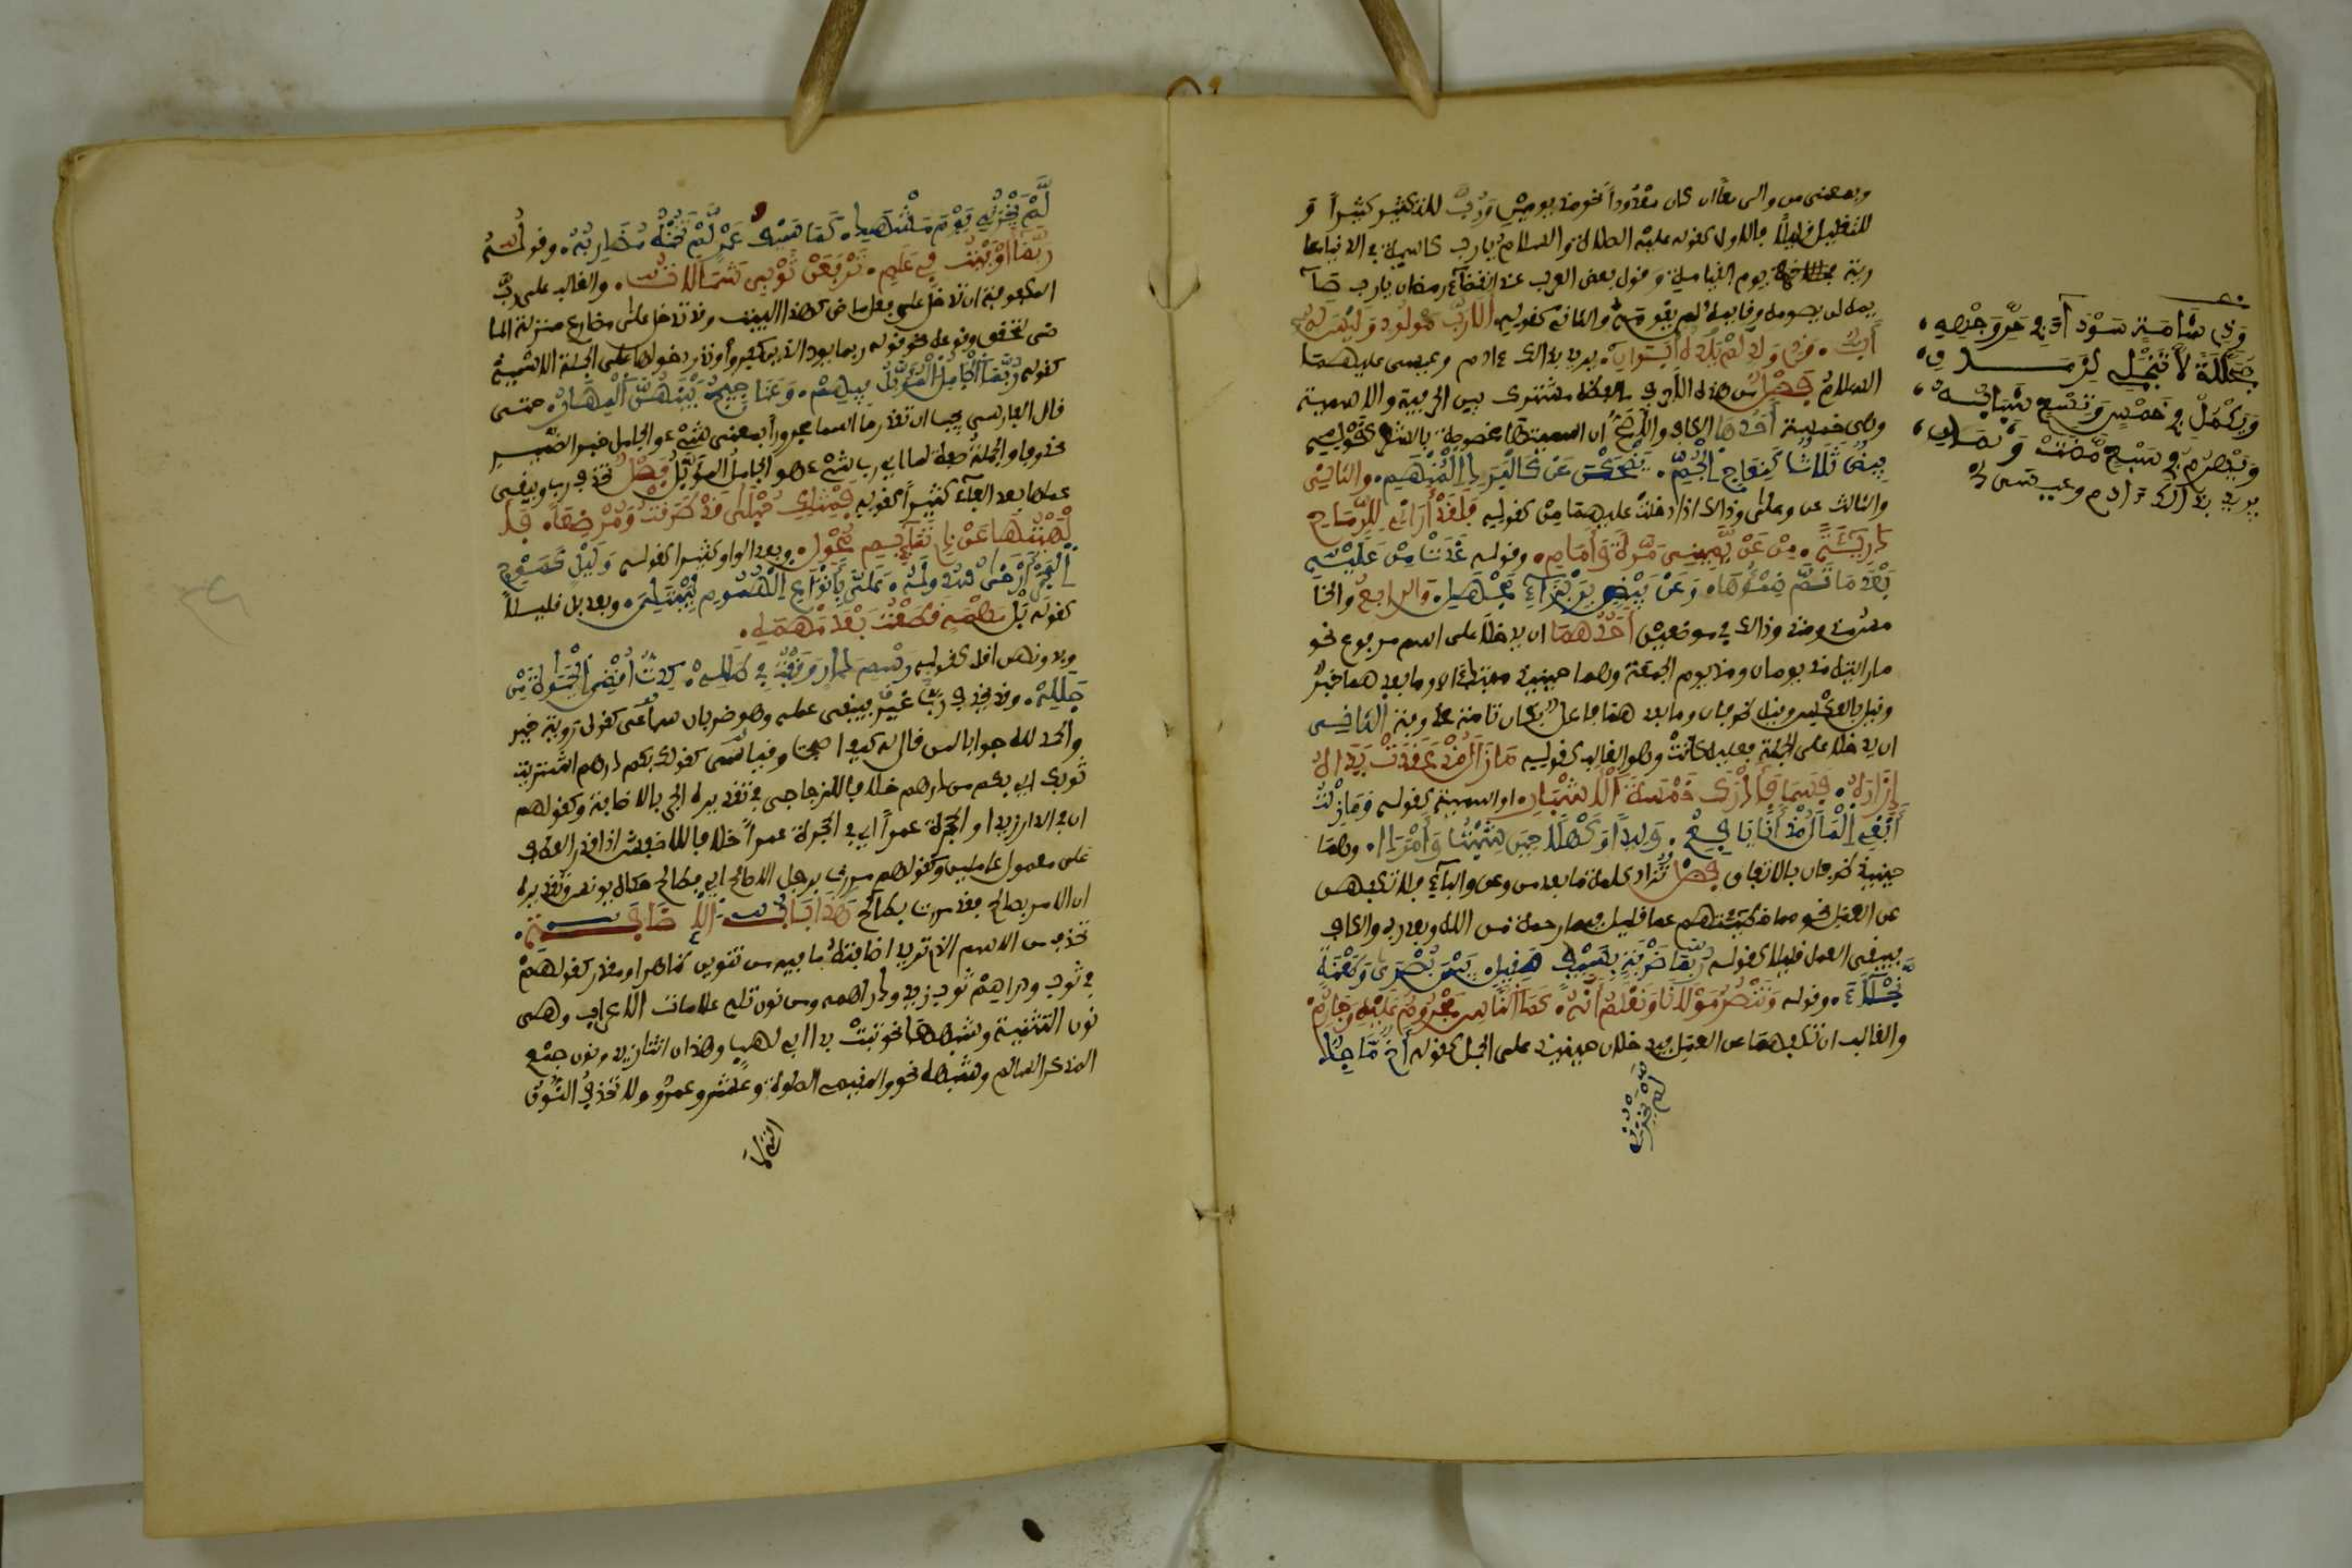 وبمعنى من والى معا ان كان معدودا نحو مذ يومين ورب للتكثير كثيرا و
للتقليل قليلا فالاول كقوله عليه الصلاة والسلام يا رب كاسية في الدنيا عا
رية يوم القيامة وقول بعض العرب عند انقضاء رمضان يا رب صا
يمه لن يصومه وقايمه لم يقومه والثاني كقوله ألا رب مولود وليس له
أب . وذي ولد لم يلده أبوان . يريد بذالك ءادم وعيسى عليهما
السلام فصل من هذه الاحرف ما لفظه مشترك بين الحرفية والاسمية
وهي خمسة أحدها الكاف والاصح ان اسميتها مخصوصة بالشعر كقوله
بيض ثلاث كنعاج الجم . يضحكن عن كالبرد المنهم . والثاني
والثالث عن وعلى وذالك اذا دخلت عليهما من كقوله فلقد أراني للرماح
دريئة . من عن يميني مرة وأمام . وقوله غدت من عليه
بعد ما تم ظمؤها . وعن قيض بزيزاء مجهل . والرابع والخا
مس مذ ومنذ وذالك في موضعين أحدهما ان يدخلا على اسم مرفوع نحو
ما رايته مذ يومان ومنذ يوم الجمعة وهما حينيذ مبتدءان وما بعدهما خبر
وقيل بالعكس وقيل ظرفان وما بعدهما فاعل بكان تامة محذوفة الثاني
ان يدخلا على الجملة فعلية كانت وهو الغالب كقوله ما زال مذ عقدت يداه
إزاره . فسما فأدرك خمسة الأشبار . او اسمية كقوله وما زلت
أبغي المال مذ أنا يافع . وليدا وكهلا حين شبت وأمردا . وهما
حينيذ ظرفان باتفاق فصل تزاد كلمة ما بعد من وعن والباء فلا تكفهن
عن العمل نحو مما خطيئتهم عما قليل فبما رحمة من الله وبعد رب والكاف
فيبقى العمل قليلا كقوله ربما ضربة بسيف صقيل . بين بصرى وطعنة
نجلاء . وقوله وننصر مولانا ونعلم أنه . كما الناس مجروم عليه وجارم
والغالب ان تكفهما عن العمل فيدخلان حينيذ على الجمل كقوله أخ ماجد
لم يخزني
وذي شامة سوداء في حر وجهه .
مجللة لا تنجلي لزمان .
ويكمل في خمس وتسع شبابه .
ويهرم في سبع مضت وثمان .
يريد بذالك ءادم وعيسى
لم يخزني يوم مشهد . كما سيف عمرو لم تخنه مضاربه . وقوله
ربما أوفيت في علم . ترفعن ثوبي شمالات . والغالب على رب
المكفوفة ان تدخل على فعل ماض كهذا البيت وقد تدخل على مضارع منزل منزلة الما
ضى لتحقق وقوعه نحو قوله ربما يود الذين كفروا وندر دخولها على الجملة الاسمية
كقوله ربما الجامل المؤبل فيهم . وعناجيج بينهن المهار . حتى
قال الفارسي يجب ان تقدر ما اسما مجرورا بمعنى شيء والجامل خبر الضمير
محذوفا والجملة صفة لما اي رب شيء هو الجامل المؤبل فصل تحذف رب ويبقى
عملها بعد الفاء كثيرا كقوله فمثلك حبلى قد طرقت ومرضعا . فأ
لهيتها عن ذي تمايم محول . وبعد الواو كثيرا كقوله وليل كموج
البحر أرخى سدوله . علي بأنواع الهموم ليبتلي . وبعد بل قليلا
كقوله بل مهمه قطعت بعد مهمه .
وبدونهن اقل كقوله رسم دار وقفت في طلله . كدت أقضي الحياة من
جلله . وقد يحذف غير رب فيبقى عمله وهو ضربان سماعي كقول روبة خير
والحمد لله جوابا لمن قال له كيف اصبحت وقياسي كقولك بكم درهم اشتريت
ثوبك اي بكم من درهم خلافا للزجاجي في تقديره الجر بالاضافة وكقولهم
ان في الدار زيدا والحجرة عمرا اي في الحجرة عمرا خلافا للاخفش اذا قدر العطف
على معمولي عاملين وكقولهم مررت برجل صالح الا صالح فطالح حكاه يونس وتقديره
ان لا امر بصالح فقد مررت بطالح هذا باب الاضافة .
تحذف من الاسم الذي تريد اضافته ما فيه من تنوين ظاهر او مقدر كقولهم
في ثوب ودراهم ثوب زيد ودراهمه ومن نون تلي علامات الاعراب وهى
نون التثنية وشبهها نحو تبت يدا ابي لهب وهذان اثنا زيد ونون جمع
المذكر السالم وشبهه نحو والمقيمي الصلوة وعشرو عمرو ولا تحذف النون
التي